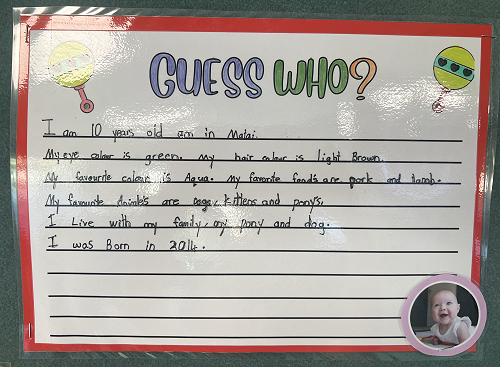 GUESS WHO?
I am 10 years old am in Matai.
My eye colour is green. My hair colour is light Brown.
My favourite colour is Aqua. My favorite food's are pork and lamb.
My favourite Animels are Dogs, kittens and ponys.
I Live with my family, my pony and dog.
I was Born in 2014.